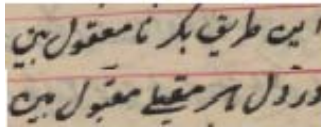 این طریق بکر نامعقول بین
در دل هر مقبلی مقبول بین